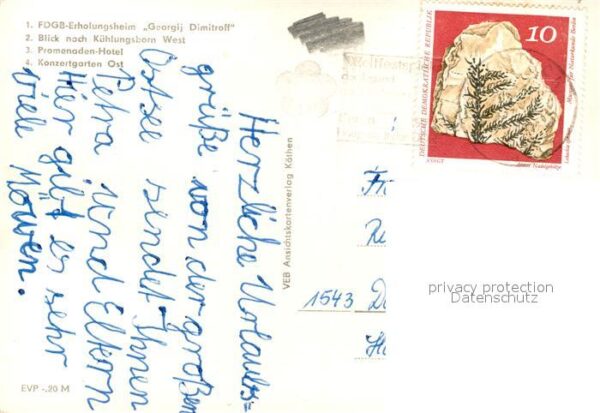 1. FDGB-Erholungsheim „Georgij Dimitroff"
2. Blick nach Kühlungsborn West
3. Promenaden-Hotel
4. Konzertgarten Ost
Herzliche Urlaubs=
grüße von der großen
Ostsee sendet Ihnen
Petra und Eltern
Hier gibt es sehr
viele Möwen.
EVP -.20 M
VEB Ansichtskartenverlag Köthen
10
DEUTSCHE DEMOKRATISCHE REPUBLIK
Museum für Naturkunde Berlin
VOIGT
1543 D
privacy protection
Datenschutz